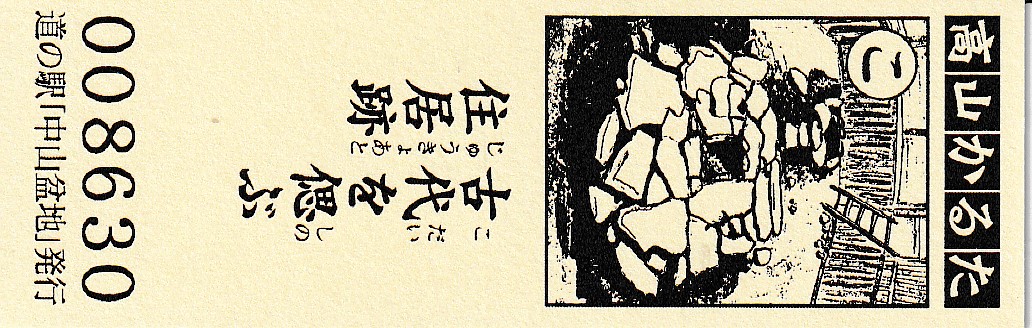 高山かるた
こ
古代を偲ぶ
こだい しの
住居跡
じゅうきょあと
008630
道の駅「中山盆地」発行